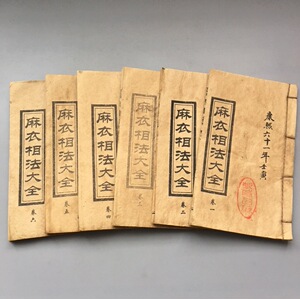 康熙六十一年壬寅
麻衣相法大全
卷一
麻衣相法大全
卷二
麻衣相法大全
卷三
麻衣相法大全
卷四
麻衣相法大全
卷五
麻衣相法大全
卷六